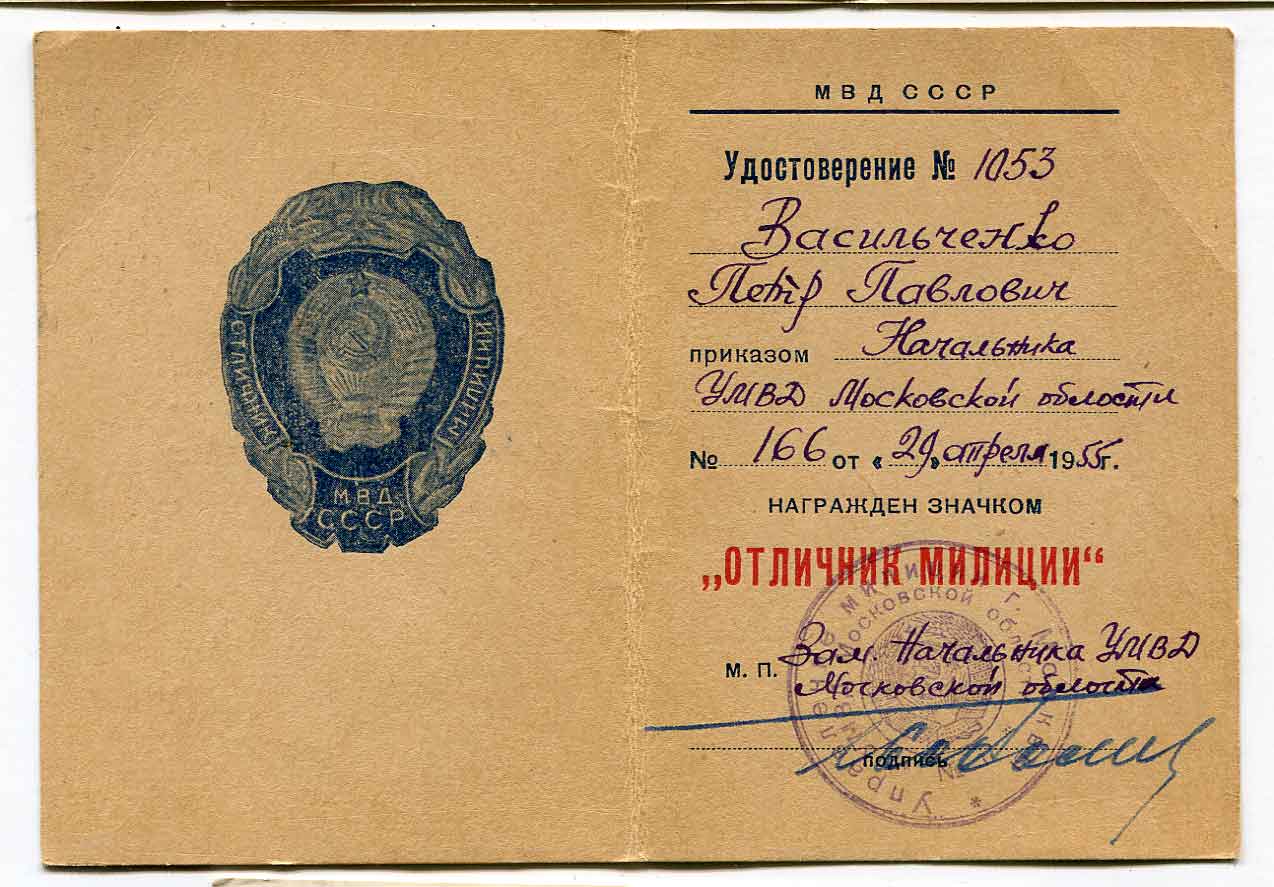 ОТЛИЧНИК
МИЛИЦИИ
МВД
СССР
МВД СССР
Удостоверение № 1053
Васильченко
Петр Павлович
приказом Начальника
УМВД Московской области
№ 166 от « 29 » апреля 1955г.
НАГРАЖДЕН ЗНАЧКОМ
„ОТЛИЧНИК МИЛИЦИИ“
М. П. Зам. Начальника УМВД
Московской области
подпись
Управление милиции г. Москвы
Московской области
№